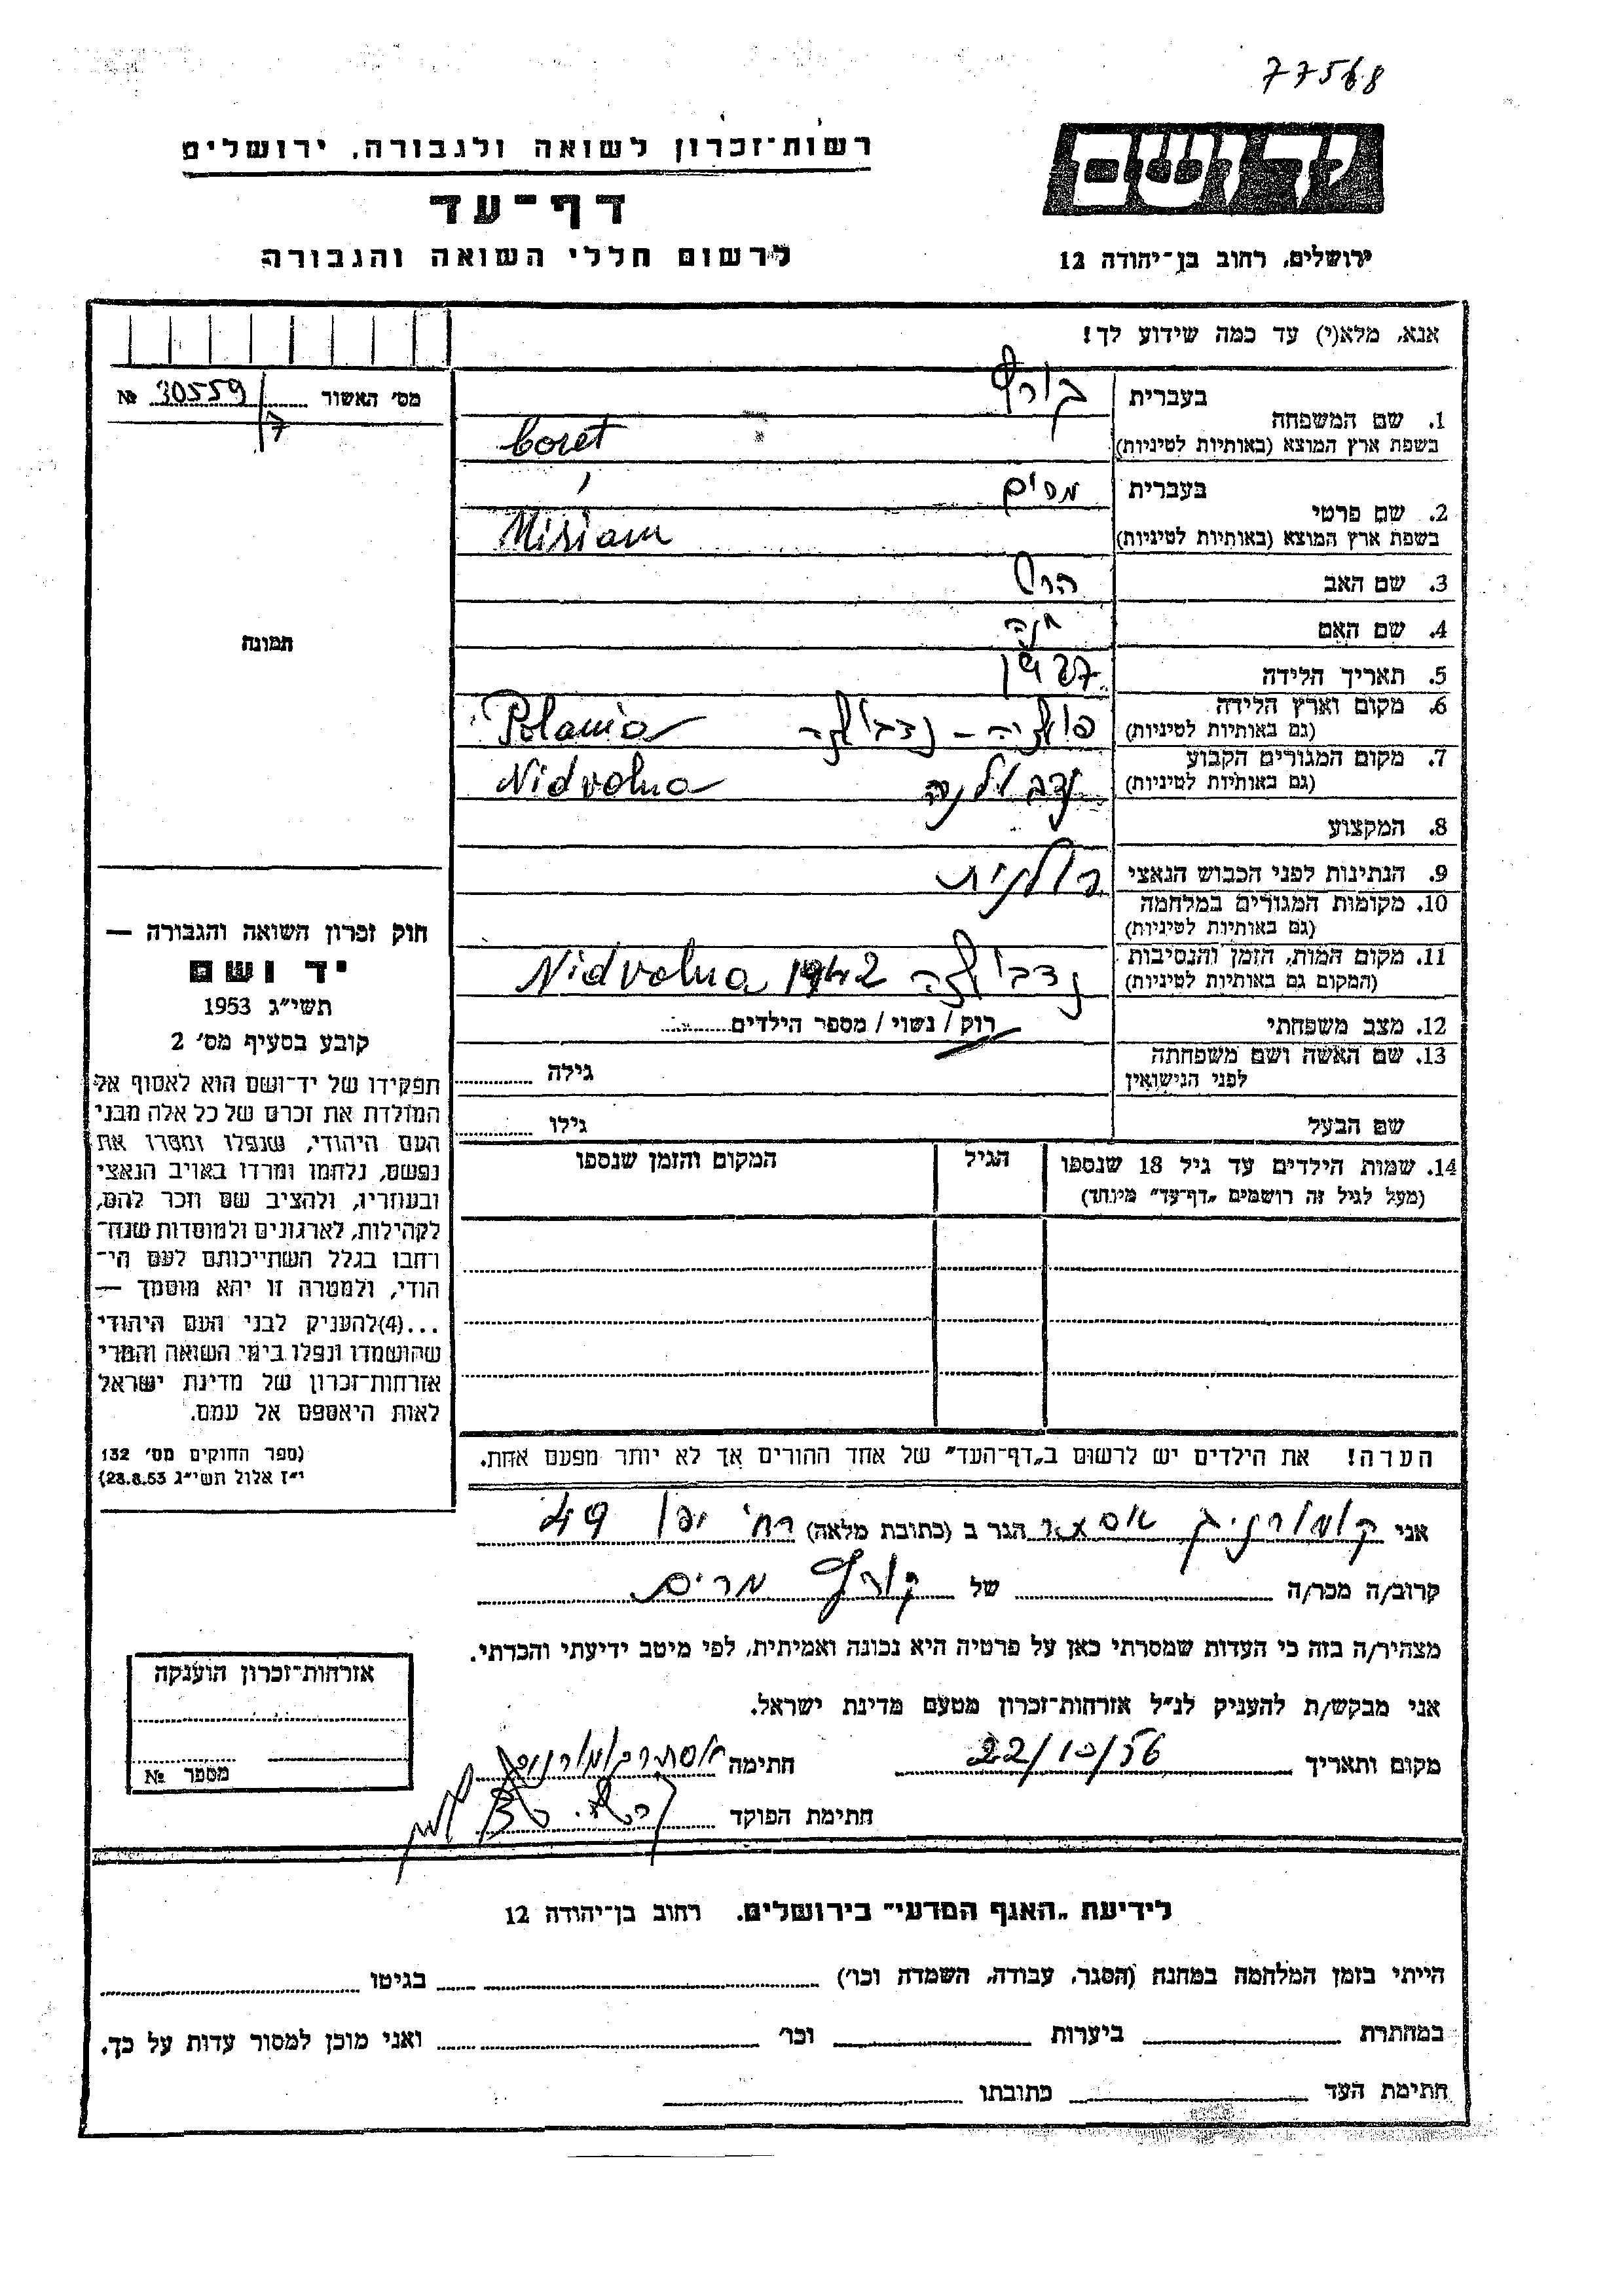 77568
רשות־זכרון לשואה ולגבורה, ירושלים
יד ושם
דף־עד
לרשום חללי השואה והגבורה
ירושלים, רחוב בן־יהודה 12
אנא, מלא(י) עד כמה שידוע לך!
מס׳ האשור 30559 №
7
1. שם המשפחה בעברית קורט
בשפת ארץ המוצא (באותיות לטיניות) Coret
2. שם פרטי בעברית מרים
בשפת ארץ המוצא (באותיות לטיניות) Miriam
3. שם האב הרש
4. שם האם חנה
5. תאריך הלידה 1927
6. מקום וארץ הלידה (גם באותיות לטיניות) פולניה – נדבולנה Polania
7. מקום המגורים הקבוע (גם באותיות לטיניות) נדבולנה Nidvolna
8. המקצוע
9. הנתינות לפני הכבוש הנאצי פולנית
10. מקומות המגורים במלחמה (גם באותיות לטיניות)
11. מקום המות, הזמן והנסיבות (המקום גם באותיות לטיניות) נדבולנה 1942 Nidvolna
12. מצב משפחתי רוק / נשוי / מספר הילדים
13. שם האשה ושם משפחתה לפני הנישואין גילה
שם הבעל גילו
14. שמות הילדים עד גיל 18 שנספו (מעל לגיל זה רושמים „דף־עד״ מיוחד) הגיל המקום והזמן שנספו
תמונה
חוק זכרון השואה והגבורה —
יד ושם
תשי״ג 1953
קובע בסעיף מס׳ 2
תפקידו של יד־ושם הוא לאסוף אל
המולדת את זכרם של כל אלה מבני
העם היהודי, שנפלו ומסרו את
נפשם, נלחמו ומרדו באויב הנאצי
ובעוזריו, ולהציב שם וזכר להם,
לקהילות, לארגונים ולמוסדות שנח־
רחבו בגלל השתייכותם לעם הי־
הודי, ולמטרה זו יהא מוסמך —
...(4)להעניק לבני העם היהודי
שהושמדו ונפלו בימי השואה והמרי
אזרחות־זכרון של מדינת ישראל
לאות היאספם אל עמם.
(ספר החוקים מס׳ 132
י״ז אלול תשי״ג 28.8.53)
הערה! את הילדים יש לרשום ב„דף־העד״ של אחד ההורים אך לא יותר מפעם אחת.
אני קמורניק אסתר הגר ב (כתובת מלאה) רח׳ יפו 49
קרוב/ה מכר/ה של קורט מרים
מצהיר/ה בזה כי העדות שמסרתי כאן על פרטיה היא נכונה ואמיתית, לפי מיטב ידיעתי והכרתי.
אני מבקש/ת להעניק לנ״ל אזרחות־זכרון מטעם מדינת ישראל.
מקום ותאריך 22/10/56 חתימה
חתימת הפוקד
אזרחות־זכרון הוענקה
מספר №
לידיעת „האגף המדעי״ בירושלים. רחוב בן־יהודה 12
הייתי בזמן המלחמה במחנה (הסגר, עבודה, השמדה וכו׳) בגיטו
במחתרת ביערות וכו׳ ואני מוכן למסור עדות על כך.
חתימת העד כתובתו